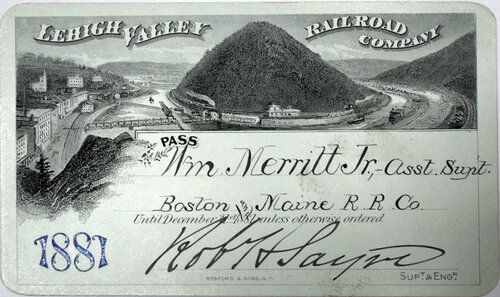 LEHIGH VALLEY RAILROAD COMPANY
PASS
Wm. Merritt Jr., Asst. Supt.
Boston and Maine R. R. Co.
Until December 31st 1881 unless otherwise ordered
1881
Robt H Sayre
SUPT & ENGR.
HOSFORD & SONS, N.Y.